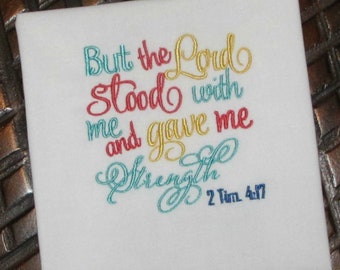 But the Lord
Stood with
me and gave me
Strength
2 Tim. 4:17